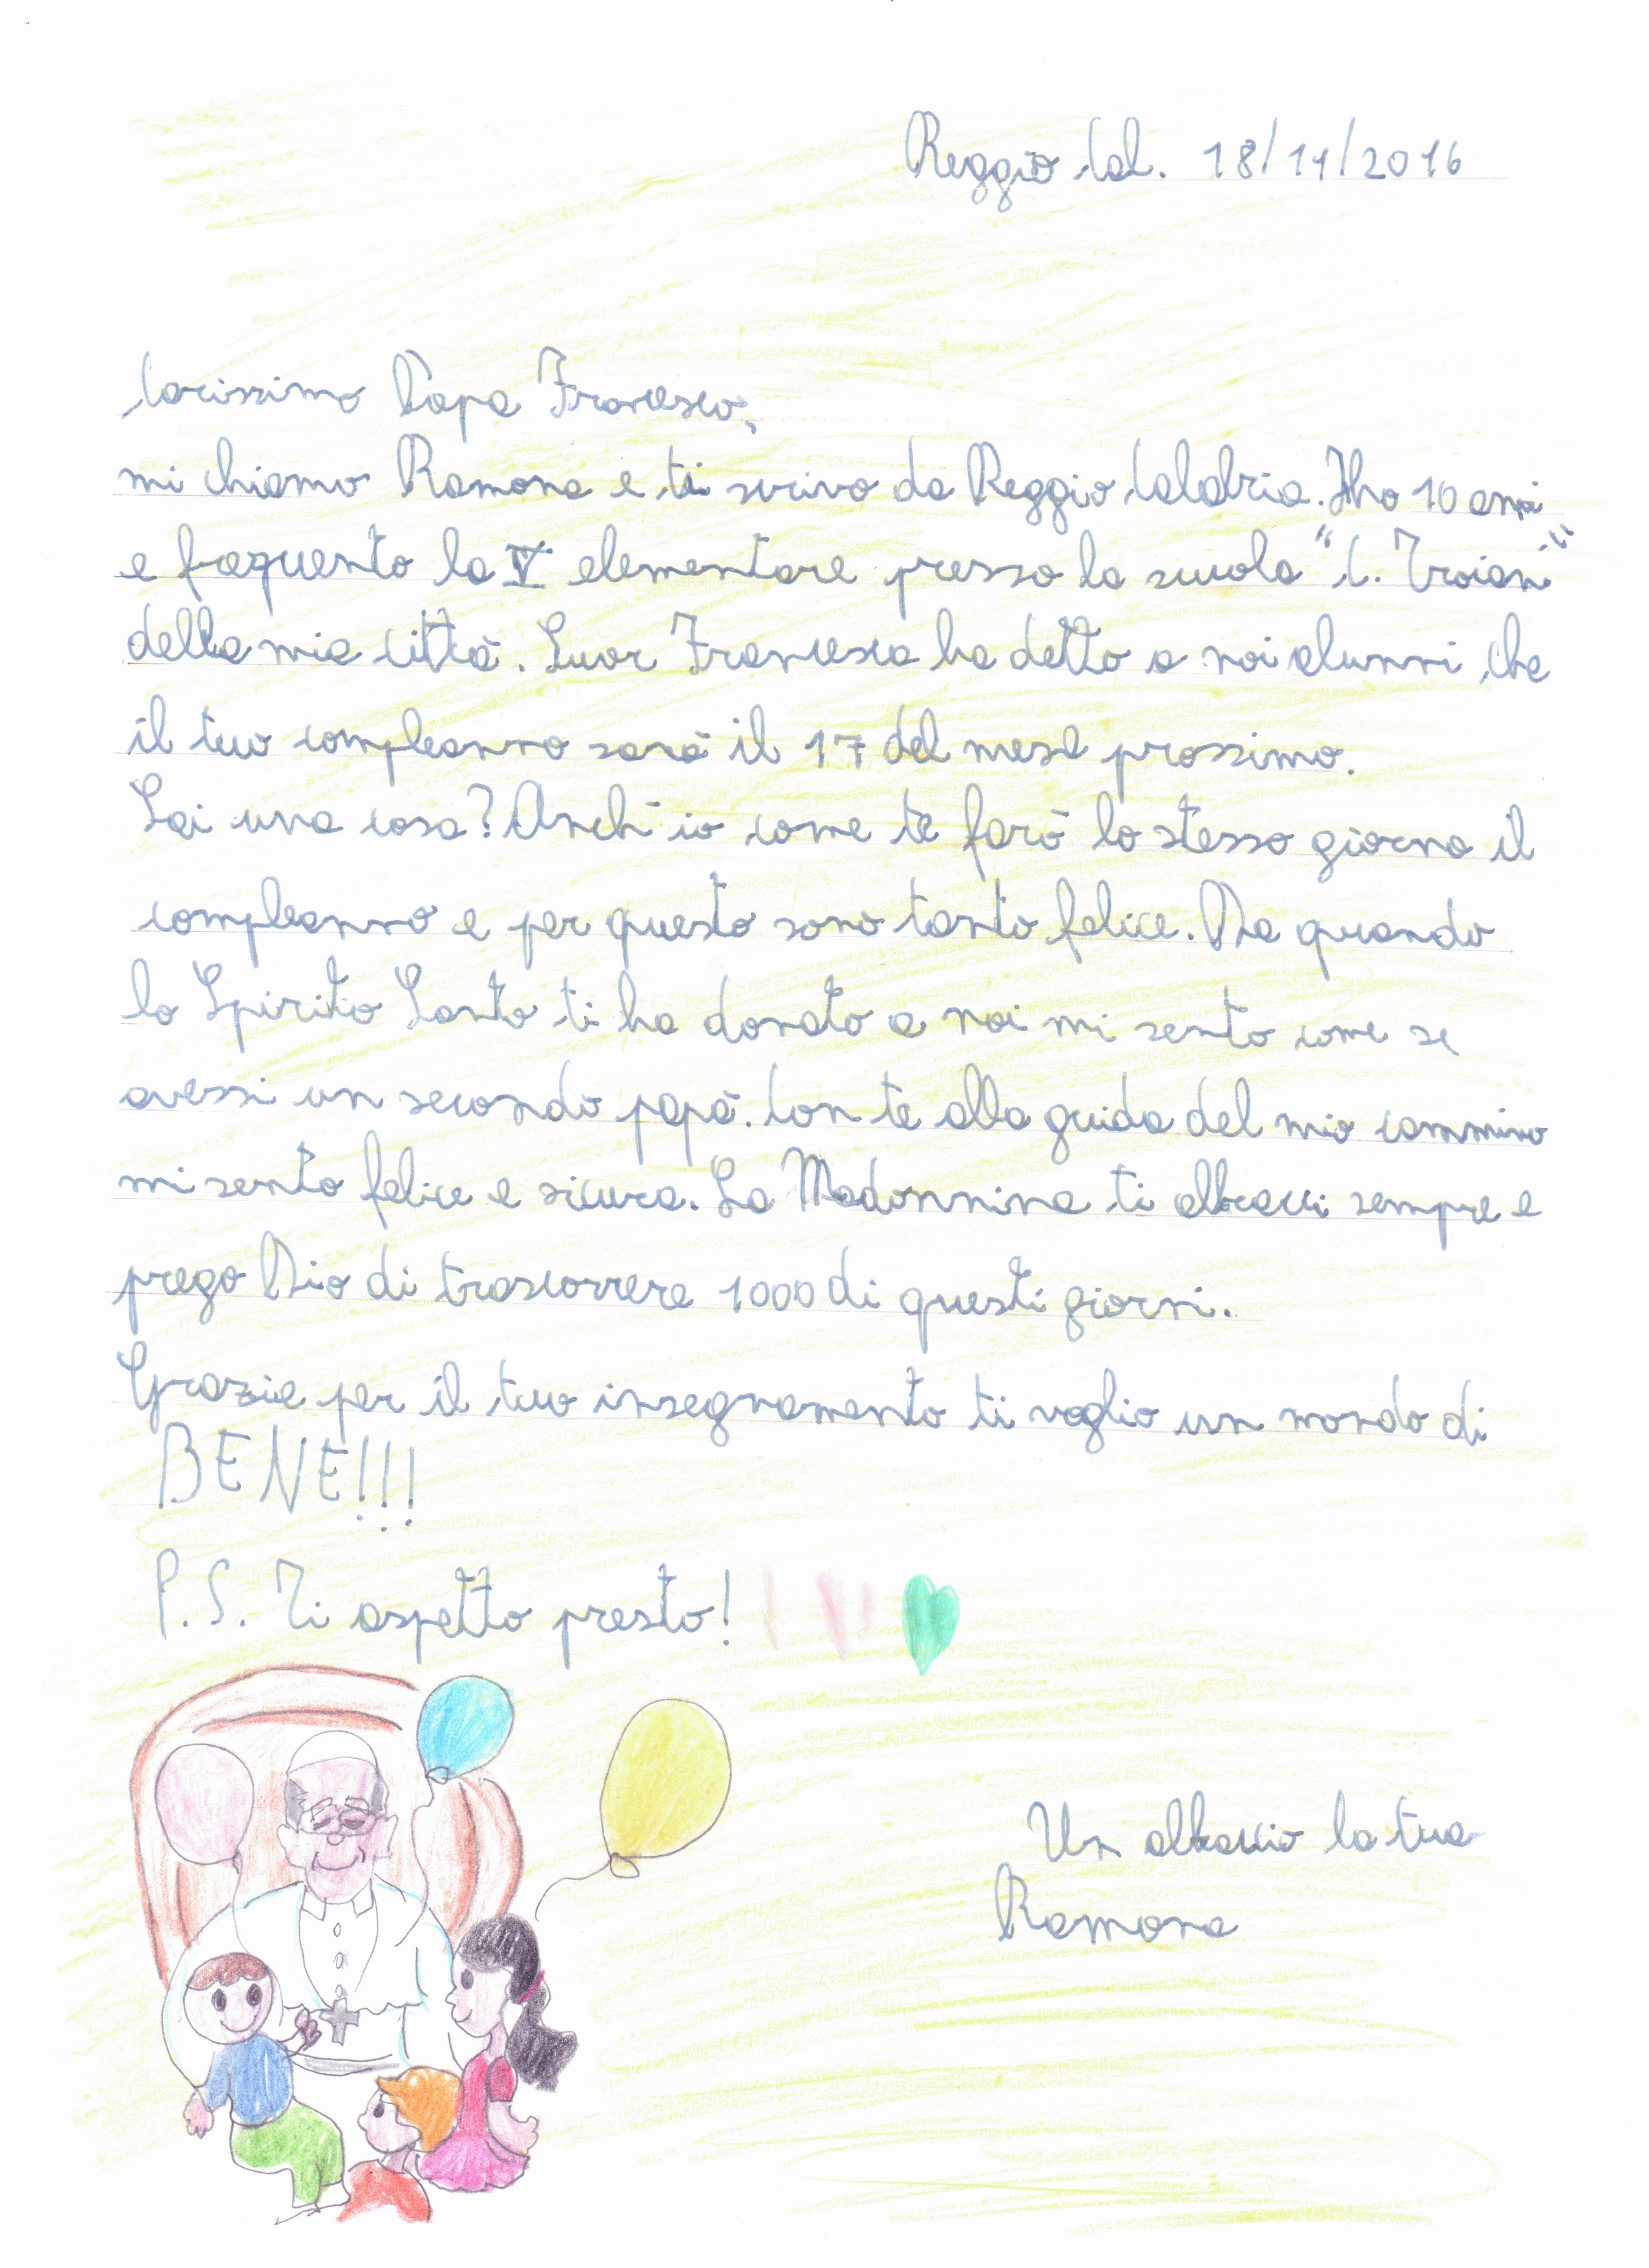 Reggio Cal. 18/11/2016
Carissimo Papa Francesco,
mi chiamo Ramona e ti scrivo da Reggio Calabria. Ho 10 anni
e frequento la V elementare presso la scuola "C. Troiani"
della mia città. Suor Francesca ha detto a noi alunni, che
il tuo compleanno sarà il 17 del mese prossimo.
Sai una cosa? Anch'io come te farò lo stesso giorno il
compleanno e per questo sono tanto felice. Da quando
lo Spirito Santo ti ha donato a noi mi sento come se
avessi un secondo papà. Con te alla guida del mio cammino
mi sento felice e sicura. La Madonnina ti abbracci sempre e
prego Dio di trascorrere 1000 di questi giorni.
Grazie per il tuo insegnamento ti voglio un mondo di
BENE!!!
P.S. Ti aspetto presto!
Un abbraccio la tua
Ramona